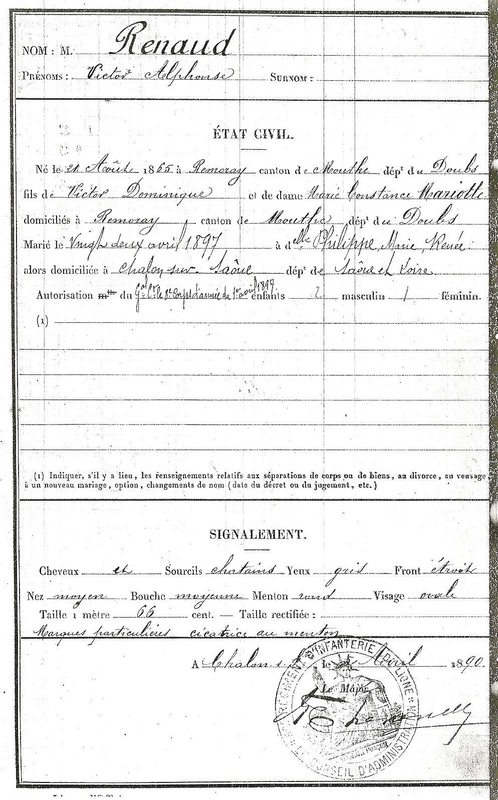 NOM : M. Renaud
PRÉNOMS : Victor Alphonse SURNOM :
ÉTAT CIVIL.
Né le 21 Août 1865 à Remoray canton de Mouthe dépt du Doubs
fils de Victor Dominique et de dame Marie Constance Mariotte
domiciliés à Remoray canton de Mouthe dépt du Doubs
Marié le Vingt deux avril 1897 à delle Philippe, Marie, Renée
alors domiciliée à Chalon sur Saône dépt de Saône et Loire.
Autorisation du Gal Ct le 8e Corps d'armée du 1er avril 1897 enfants 2 masculin 1 féminin.
(1)
(1) Indiquer, s'il y a lieu, les renseignements relatifs aux séparations de corps ou de biens, au divorce, au veuvage,
à un nouveau mariage, option, changements de nom (date du décret ou du jugement, etc.)
SIGNALEMENT.
Cheveux et Sourcils chatains Yeux gris Front étroit
Nez moyen Bouche moyenne Menton rond Visage ovale
Taille 1 mètre 66 cent. — Taille rectifiée :
Marques particulières cicatrice au menton
A Chalon s/ le Avril 1890.
Le Major
RÉGIMENT D'INFANTERIE DE LIGNE
CONSEIL D'ADMINISTRATION